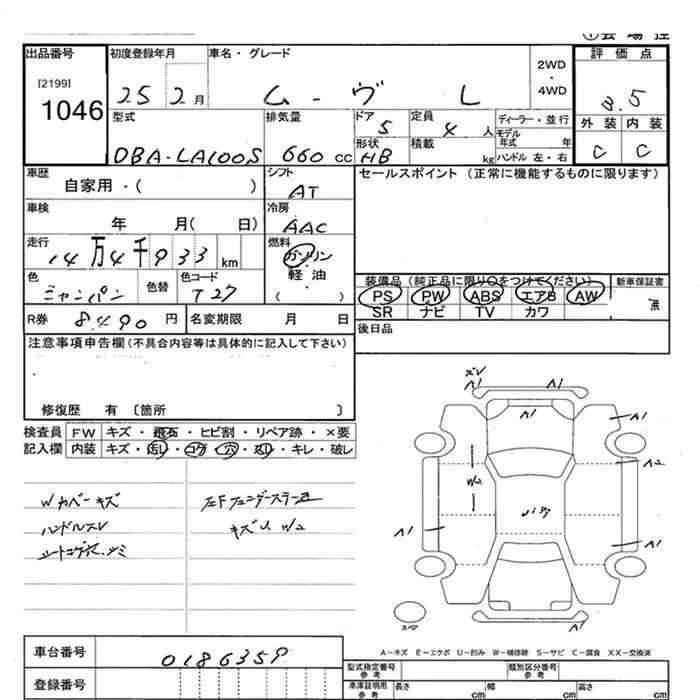 出品番号 初度登録年月 車名・グレード 2WD・4WD 評価点
[2199]
1046 25 2月 ムーヴ L 3.5
型式 排気量 ドア 定員 ディーラー・並行 外装 内装
5 4人 モデル年式 年
DBA-LA100S 660cc 形状 HB 積載 kg ハンドル 左・右 C C
車歴 シフト セールスポイント (正常に機能するものに限ります)
自家用・( ) AT
車検 冷房
年 月( 日) AAC
走行 燃料
14万4千933km ガソリン
軽油
( )
色 色替 色コード 装備品 (純正品に限り○をつけてください) 新車保証書
シャンパン T27 PS PW ABS エアB AW 無
SR ナビ TV カワ
R券 8,490円 名変期限 月 日 後日品
注意事項申告欄(不具合内容等は具体的に記入して下さい)
修復歴 有 〔箇所 〕
検査員 FW キズ・飛石・ヒビ割・リペア跡・×要
記入欄 内装 キズ・汚レ・コゲ・穴・スリ・キレ・破レ
Wカバーキズ 左Fフェンダーステー凹
ハンドルスレ キズU W2
シートコゲ穴、シミ
ズレ
A1 A1
A1 A1
A2
W2
A1 A1
A1
スペア
A-キズ E-エクボ U-凹み W-補修跡 S-サビ C-腐食 XX-交換済
車台番号 0186359
登録番号
型式指定番号 参考 類別区分番号 参考
車庫証明用 参考 長さ cm 幅 cm 高さ cm